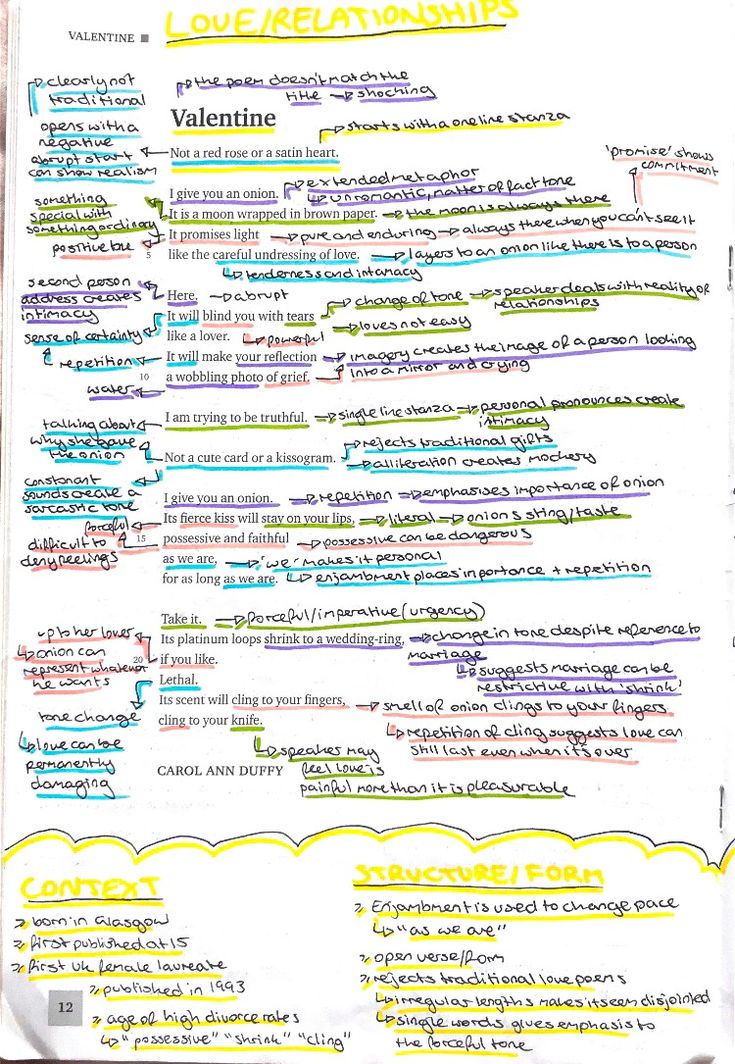 LOVE/RELATIONSHIPS
VALENTINE ■
clearly not
traditional
the poem doesn't match the
title → shocking
Valentine
starts with a one line stanza
opens with a
negative
abrupt start
can show realism
Not a red rose or a satin heart.
'promise' shows
commitment
extended metaphor
unromantic, matter of fact tone
I give you an onion.
something
special with
something ordinary
It is a moon wrapped in brown paper. → the moon is always there
positive
It promises light → pure and enduring → always there when you can't see it
5
like the careful undressing of love. → layers to an onion like there is to a person
tenderness and intamacy
second person
address creates
intimacy
Here. → abrupt
change of tone → speaker deals with reality of
relationships
It will blind you with tears
loves not easy
sense of certainty
like a lover.
powerful
repetition
It will make your reflection → imagery creates the image of a person looking
into a mirror and crying
10
a wobbling photo of grief.
water
I am trying to be truthful. → single line stanza → personal pronounces create
intimacy
talking about
why she gave
the onion
rejects traditional gifts
Not a cute card or a kissogram.
alliteration creates mockery
constonant
sounds create a
sarcastic tone
I give you an onion. → repetition → emphasises importance of onion
Its fierce kiss will stay on your lips, → literal → onions sting/taste
forceful
difficult to
deny feelings
15
possessive and faithful → possessive can be dangerous
as we are, → 'we' makes it personal
for as long as we are.
enjambment places inportance + repetition
Take it. → forceful/imperative (urgency)
up to her lover
onion can
represent whatever
he wants
Its platinum loops shrink to a wedding-ring, → change in tone despite reference to
marriage
20
if you like.
suggests marriage can be
restrictive with 'shrink'
Lethal.
tone change
love can be
permanently
damaging
Its scent will cling to your fingers, → smell of onion clings to your fingers
cling to your knife.
repetition of cling suggests love can
still last even when it's over
speaker may
feel love is
painful more than it is pleasurable
CAROL ANN DUFFY
CONTEXT
> born in Glasgow
> first published at 15
> first UK female laureate
> published in 1993
> age of high divorce rates
"possessive" "shrink" "cling"
12
STRUCTURE/FORM
> Enjambment is used to change pace
"as we are"
> open verse/form
> rejects traditional love poems
irregular lengths makes it seem disjointed
single words gives emphasis to
the forceful tone